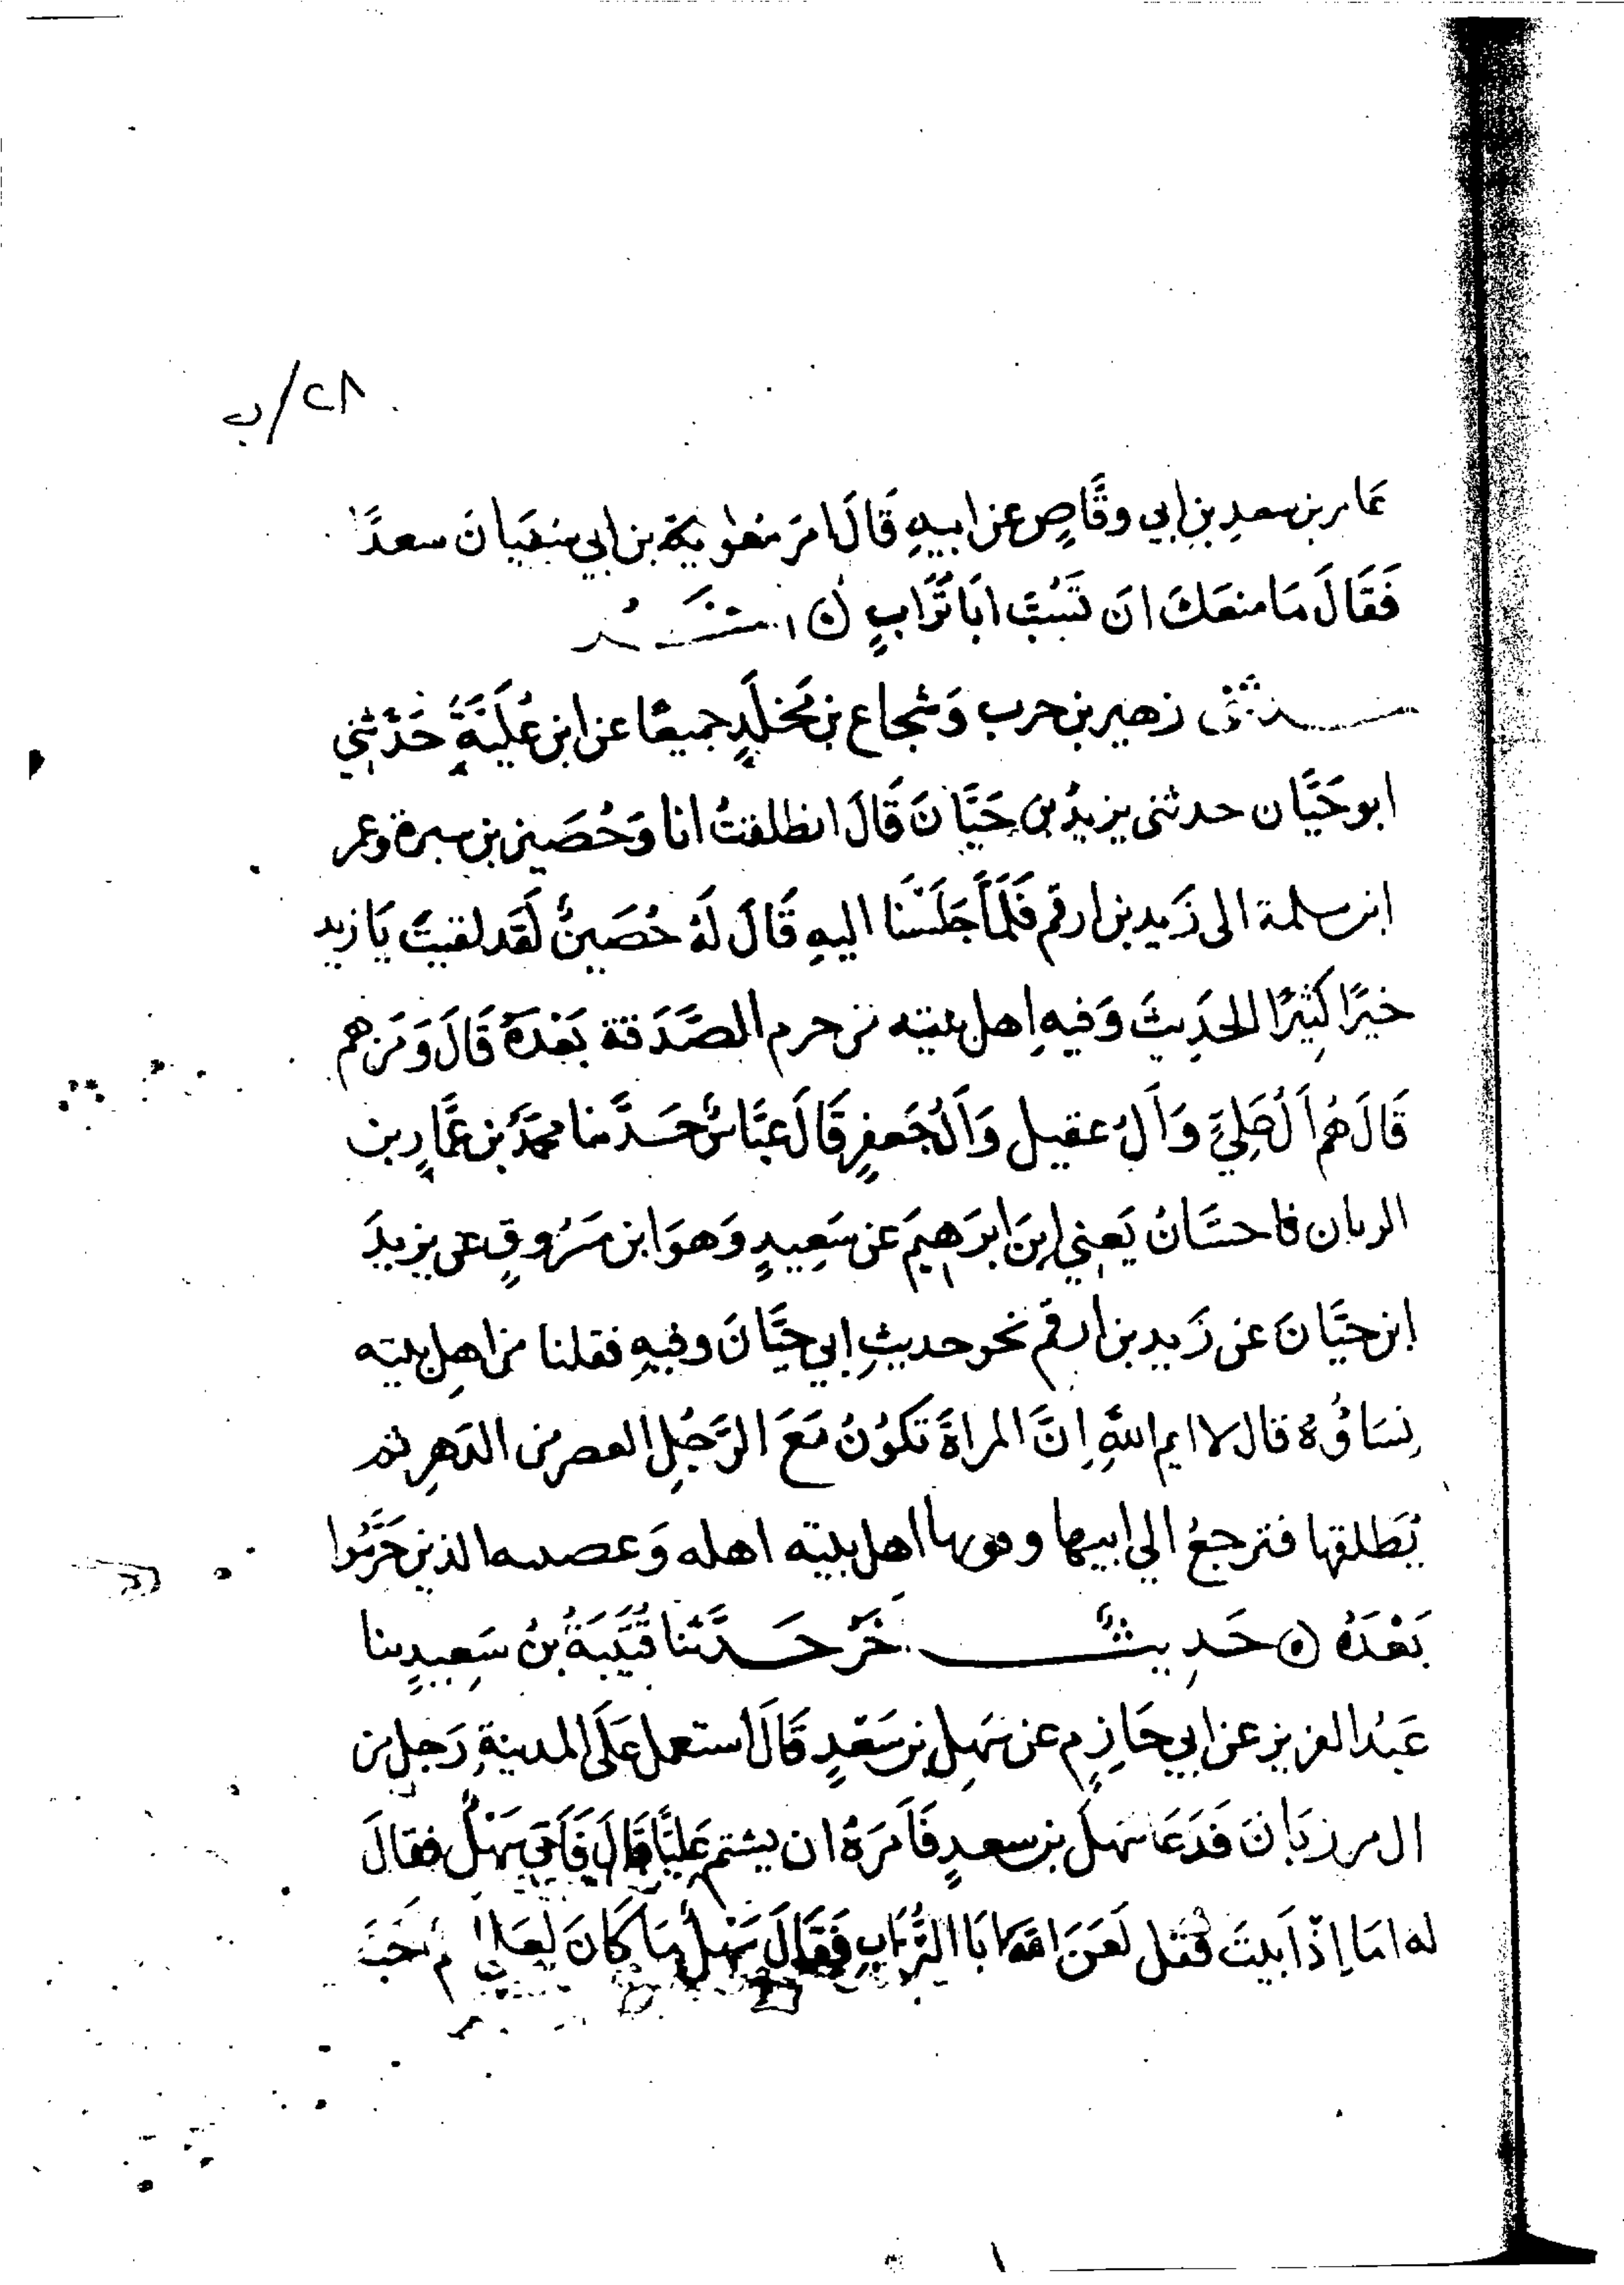 ٢٨/ب
عَامر بن سعدِ بنِ ابي وقَّاصٍ عن ابيهِ قَالَ امَرَ مُعٰويَة بن ابي سُفيَانَ سعدًا
فَقَالَ مَا منعَكَ ان تَسُبَّ ابَا تُرَابٍ
زهير بن حرب وَشجاع بن مَخلَدٍ جميعًا عن ابن عُلَيَّةَ حَدَّثني
ابو حَيَّان حدثنى يزيدُ بن حَيَّانَ قَالَ انطلقتُ انا وَحُصَين بن سبرة وعمر
ابن سلمة الى زَيد بن ارقم فَلَمَّا جَلَسْنا اليهِ قَالَ لَهُ حُصَينٌ لَقَد لقيتَ يَا زيد
خيرًا كثيرًا الحَدِيثَ وَفيهِ اهل بيته من حرم الصَّدَقة بَعْدَهُ قَالَ وَمَن هم
قَالَ هُم آلُ عَلِيّ وَآلُ عقيل وَآلُ جَعفرٍ قَالَ عبَّاسٌ حَدَّثنا محمَّدُ بن عمَّارِ بن
الريان نا حسَّانُ يَعني ابنَ ابرَهيمَ عن سَعِيدٍ وَهوَ ابن مَسرُوقٍ عن يزيدَ
ابن حيَّانَ عن زَيد بن ارقم نحو حديثِ ابي حيَّانَ وفيهِ فقلنا من اهل بيته
نِسَاؤُهُ قال لا ايم اللهِ انَّ المراةَ تَكوُنُ مَعَ الرَّجُلِ العصر من الدَهرِ ثم
يُطلقها فترجعُ الي ابيها وقومها اهل بيته اهله وَعصبته الذين حُرِّمُوا
بَعْدَهُ ه حَدِيثٌ آخَرُ حَدَّثنا قُتَيبَةُ بنُ سَعِيدٍ نا
عَبدُ العزيز عن ابي حَازِمٍ عن سَهلِ بن سَعْدٍ قَالَ استعمل عَلَى المدينةِ رَجل من
ال مرزبانَ فَدَعَا سَهلَ بن سعدٍ فَأَمَرَهُ ان يشتم عَليًّا قَالَ فَأَبَى سَهْلٌ فقالَ
له امَا إذْ ابيتَ فقل لَعَنَ اللهُ ابَا التُّرَابِ فَقَالَ سَهْلٌ مَا كَانَ لِعَلِيٍّ اسم احَبَّ